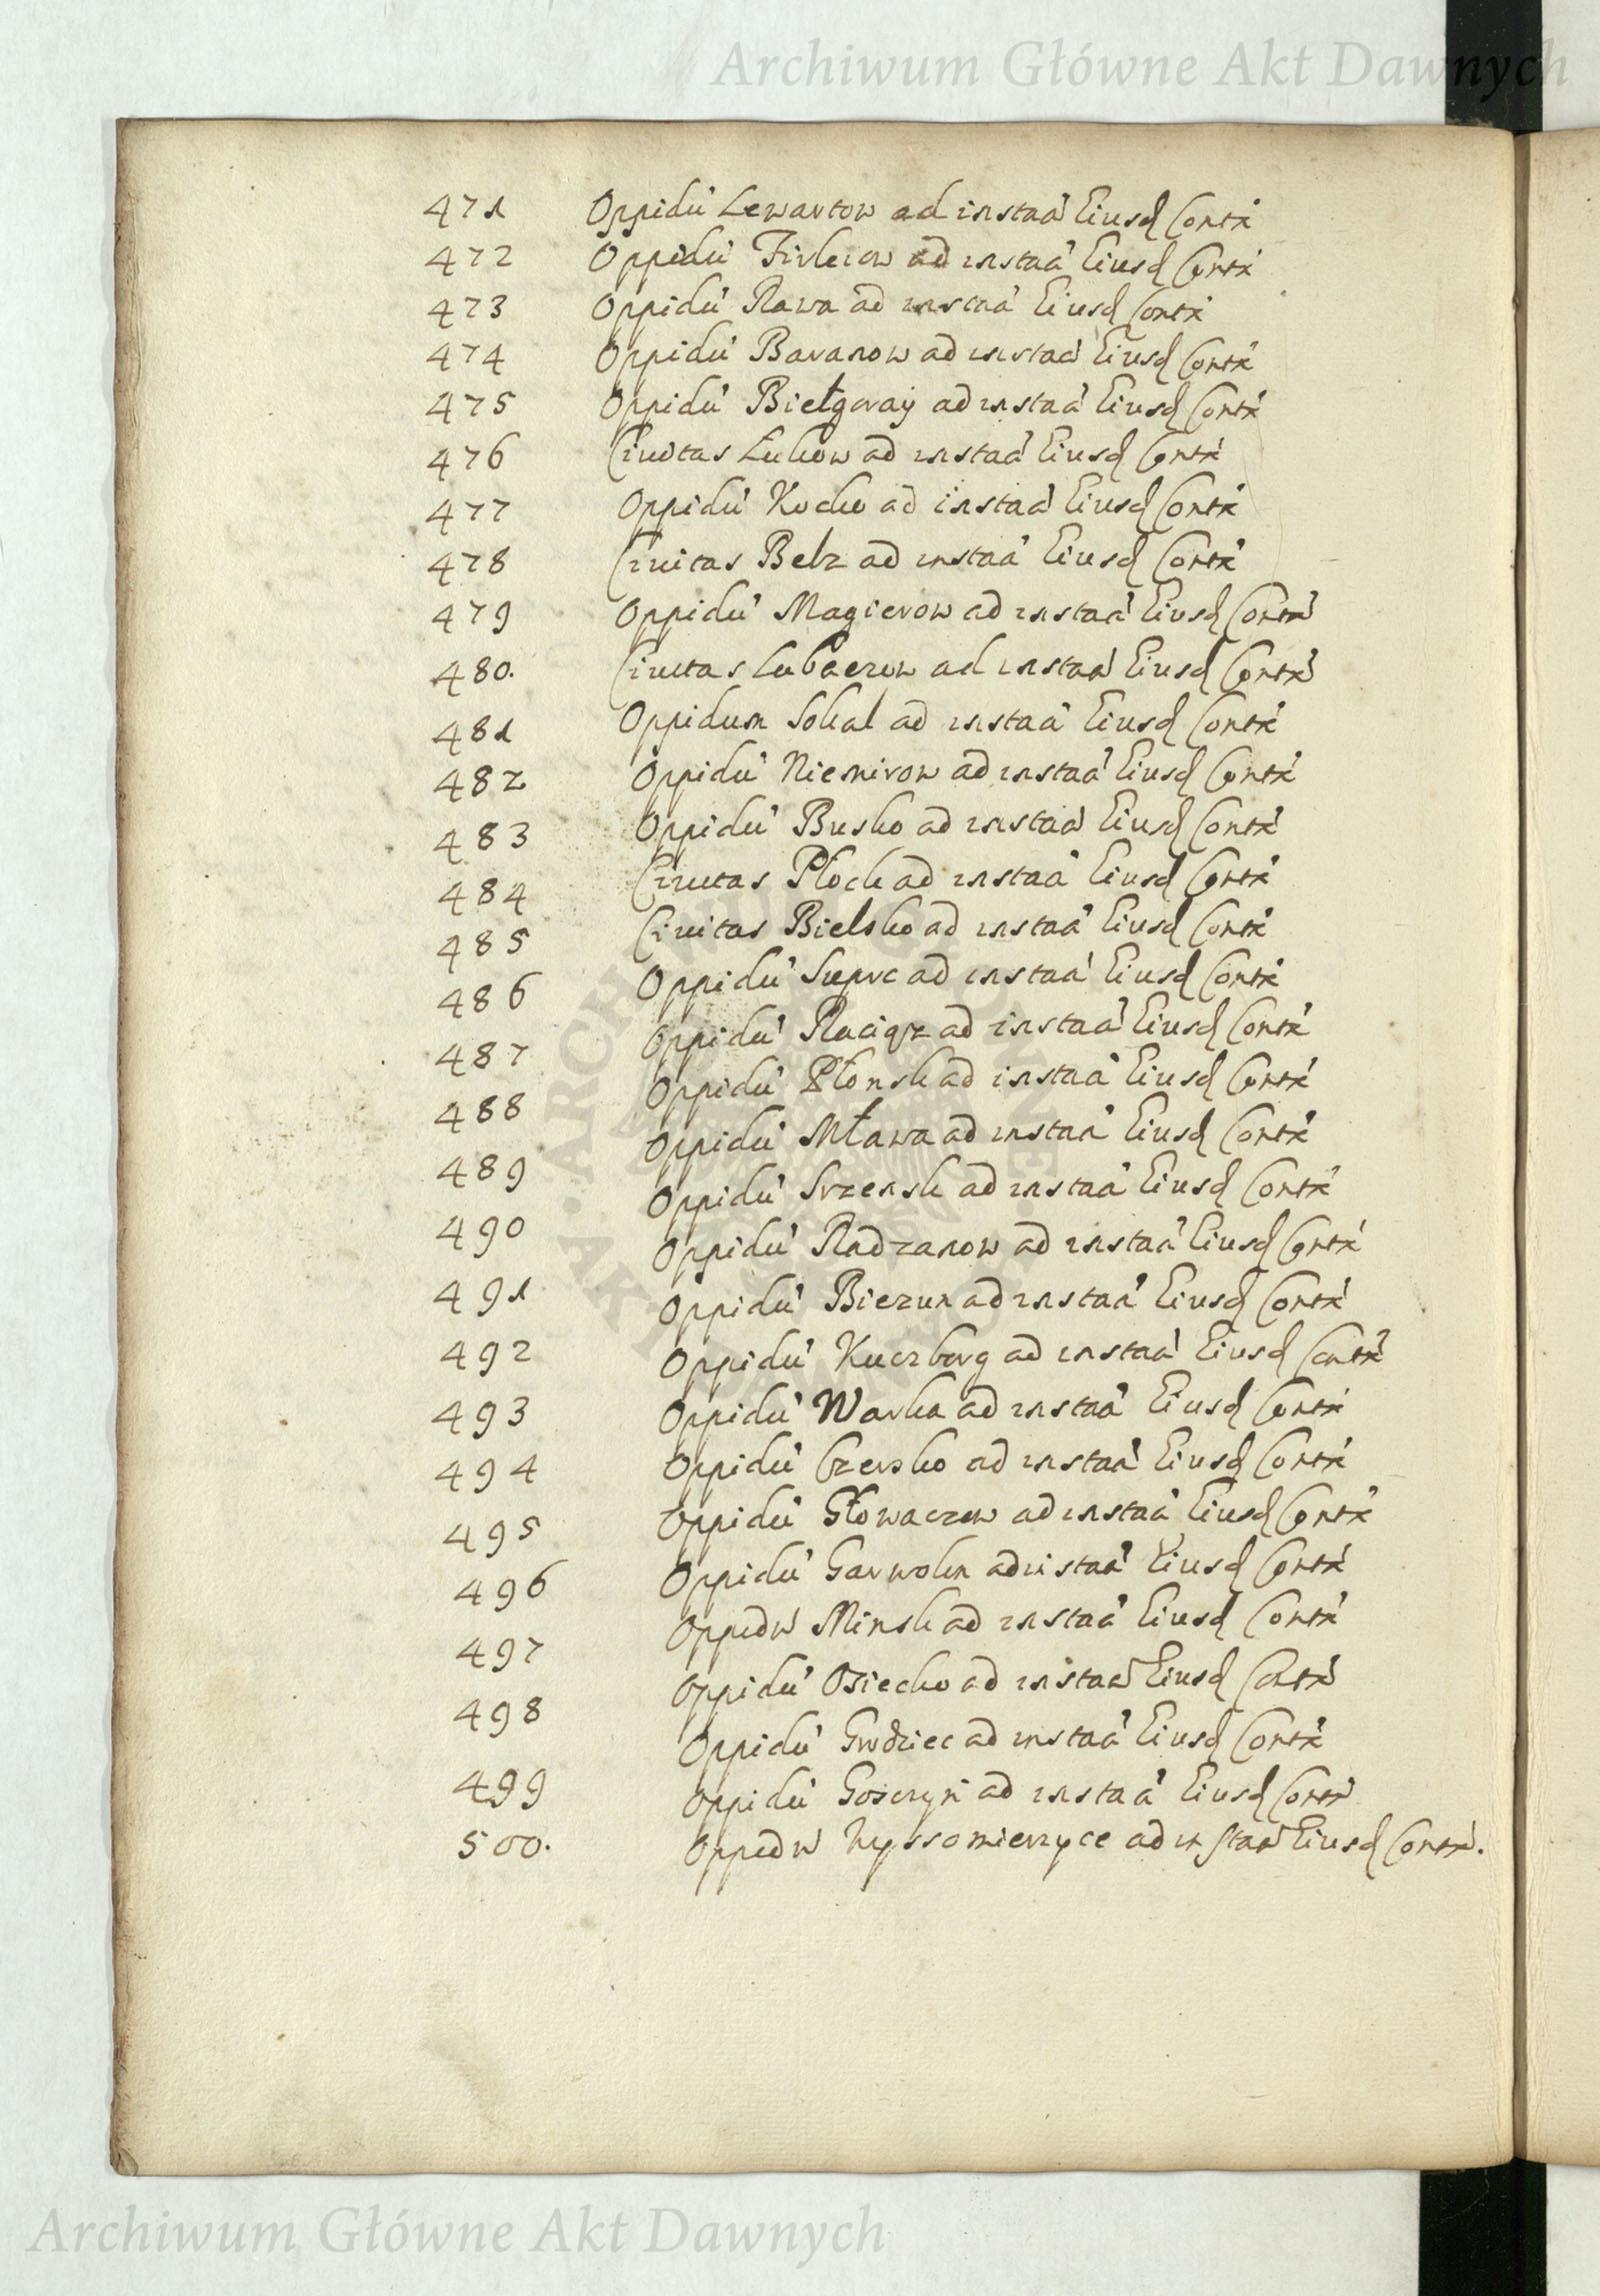 Archiwum Główne Akt Dawnych
471 Oppidũ Lewartow ad instaã Eiusd Contã
472 Oppidũ Firleiow ad instaã Eiusd Contã
473 Oppidũ Rawa ad instaã Eiusd Contã
474 Oppidũ Baranow ad instaã Eiusd Contã
475 Oppidũ Biełgoray ad instaã Eiusd Contã
476 Ciuitas Lukow ad instaã Eiusd Contã
477 Oppidũ Kocko ad instaã Eiusd Contã
478 Ciuitas Belz ad instaã Eiusd Contã
479 Oppidũ Magierow ad instaã Eiusd Contã
480. Ciuitas Lubaczow ad instaã Eiusd Contã
481 Oppidum Sokal ad instaã Eiusd Contã
482 Oppidũ Niemirow ad instaã Eiusd Contã
483 Oppidũ Busko ad instaã Eiusd Contã
484 Ciuitas Plock ad instaã Eiusd Contã
485 Ciuitas Bielsko ad instaã Eiusd Contã
486 Oppidũ Sieprc ad instaã Eiusd Contã
487 Oppidũ Raciąz ad instaã Eiusd Contã
488 Oppidũ Płonsk ad instaã Eiusd Contã
489 Oppidũ Mława ad instaã Eiusd Contã
490 Oppidũ Srzensk ad instaã Eiusd Contã
491 Oppidũ Radzanow ad instaã Eiusd Contã
492 Oppidũ Biezun ad instaã Eiusd Contã
493 Oppidũ Kuczborg ad instaã Eiusd Contã
494 Oppidũ Warka ad instaã Eiusd Contã
495 Oppidũ Czersko ad instaã Eiusd Contã
496 Oppidũ Głowaczow ad instaã Eiusd Contã
497 Oppidũ Garwolin ad instaã Eiusd Contã
498 Oppidũ Minsk ad instaã Eiusd Contã
499 Oppidũ Osiecko ad instaã Eiusd Contã
500. Oppidũ Grodziec ad instaã Eiusd Contã
Oppidũ Gosczyn ad instaã Eiusd Contã
Oppidũ Wyssomierzyce ad instaã Eiusd Contã.
Archiwum Główne Akt Dawnych